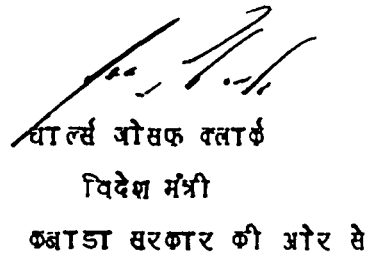 चार्ल्स जोसफ क्लार्क
विदेश मंत्री
कनाडा सरकार की ओर से